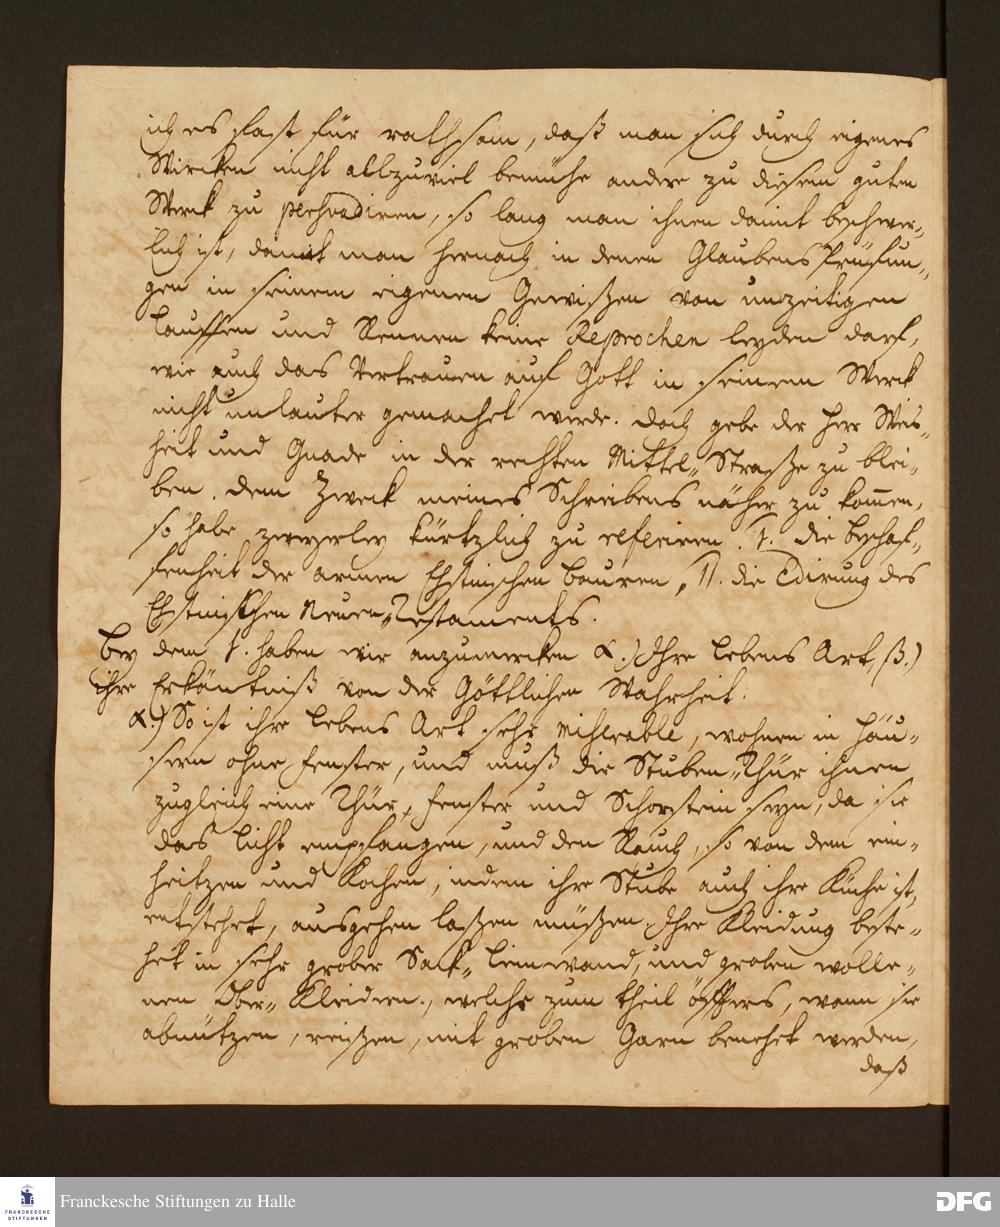 ich es fast für rathsam, daß man sich durch eigenes
Wircken nicht allzuviel bemühe andere zu diesem guten
Werck zu persvadiren, so lang man ihnen damit beschwer„
lich ist, damit man hernach in denen Glaubens Prüfun„
gen in seinem eigenen Gewißen von unzeitigen
Lauffen und Rennen keine Reprochen leyden darf,
wie auch das Vertrauen auf Gott in seinem Werck
nicht unlauter gemachet werde. doch gebe der Herr Weis„
heit und Gnade in der rechten Mittel„Straße zu blei„
ben. dem Zweck meines Schreibens näher zu kom̅en,
so habe zweyerley kürtzlich zu referiren. I. die beschaf„
fenheit der armen Ehstnischen Bauren, II. die Edirung des
Ehstnischen Neuen„Testaments.
Bey dem I. haben wir anzumercken α.) Ihre Lebens Art, β.)
ihre Erkäntniß von der Göttlichen Wahrheit.
α.) So ist ihre Lebens Art sehr miserable, wohnen in Häu„
sern ohne Fenster, und muß die Stuben„Thür ihnen
zugleich eine Thür, Fenster und Schorstein seyn, da sie
das Licht empfangen, und den Rauch, so von dem ein„
heitzen und Kochen, indem ihre Stube auch ihre Küche ist,
entstehet, ausgehen laßen müßen. Ihre Kleidung beste„
het in sehr grober Sack„ Leinwand, und groben wolle„
nen Ober„ Kleidern, welche zum theil öffters, wann sie
abnützen, reißen, mit groben Garn benehet werden,
daß
Franckesche Stiftungen zu Halle
FRANCKESCHE
STIFTUNGEN
DFG